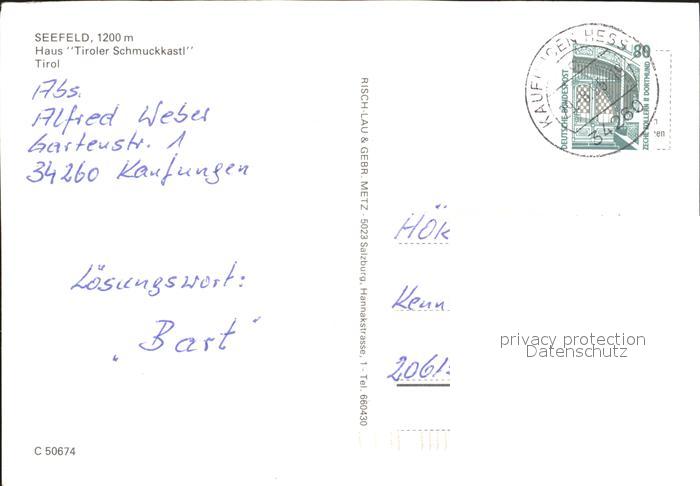 SEEFELD, 1200 m
Haus "Tiroler Schmuckkastl"
Tirol
Abs.
Alfred Weber
Gartenstr. 1
34260 Kaufungen
Lösungswort:
„Bart"
C 50674
RISCH-LAU & GEBR. METZ - 5023 Salzburg, Hannakstrasse, 1 - Tel. 660430
KAUFUNGEN HESS
34260
80
DEUTSCHE BUNDESPOST
ZECHE ZOLLERN II DORTMUND
HÖK
Kenn
2061
privacy protection
Datenschutz